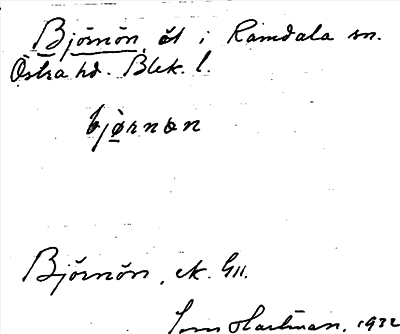 Björnön, öl i Ramdala sn.
Östra hd. Blek. l.
bjørnøn
Björnön, ek. 
Hartman, 1932